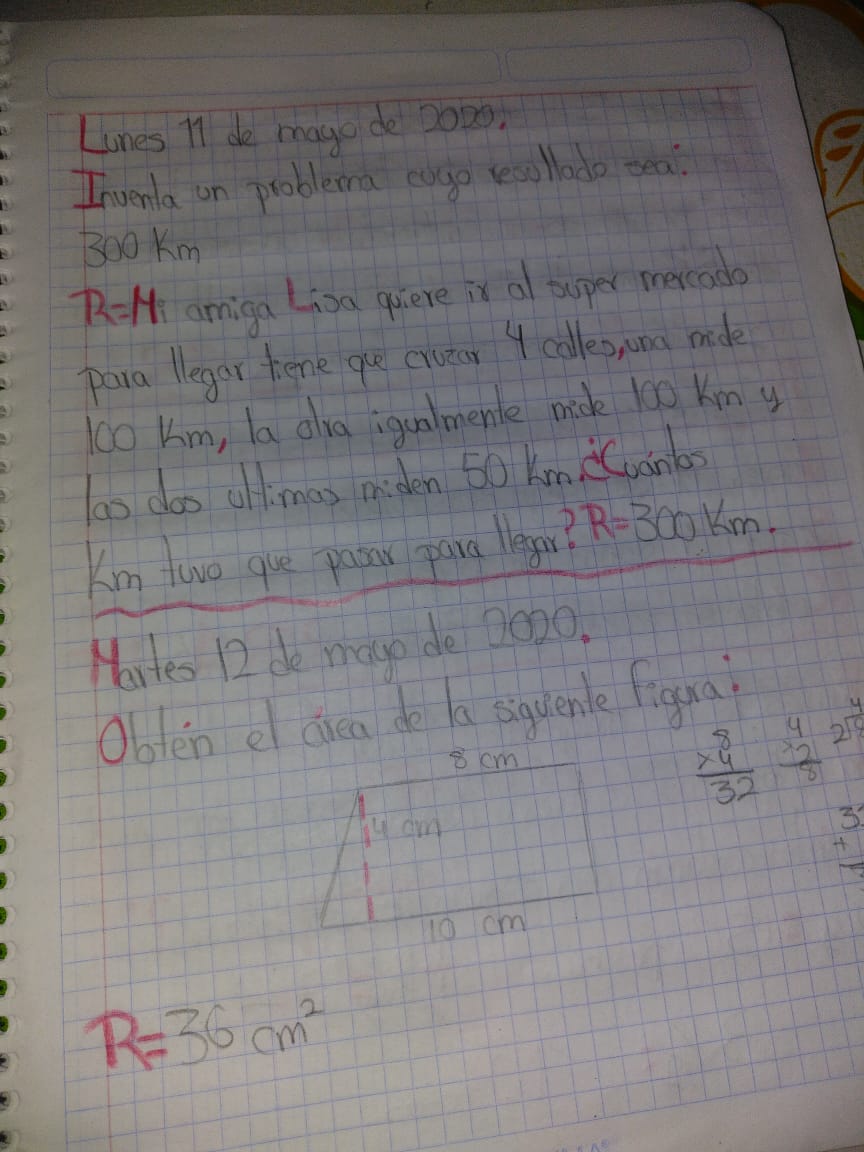 Lunes 11 de mayo de 2020.
Inventa un problema cuyo resultado sea:
300 Km
R=Mi amiga Lisa quiere ir al super mercado
para llegar tiene que cruzar 4 calles, una mide
100 Km, la otra igualmente mide 100 Km y
las dos ultimas miden 50 Km ¿Cuántos
Km tuvo que pasar para llegar? R=300 Km.
Martes 12 de mayo de 2020.
Obtén el área de la siguiente figura:
8 cm
4 cm
10 cm
8
x4
32
4
x2
8
4
2
3
+
R=36 cm²